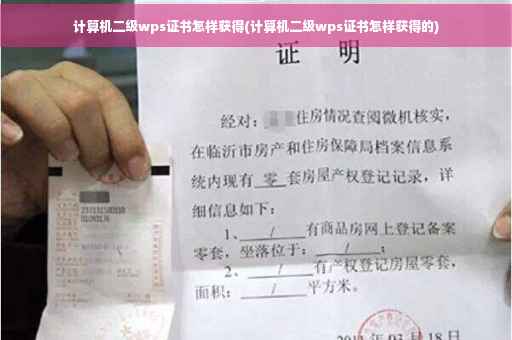 计算机二级wps证书怎样获得(计算机二级wps证书怎样获得的)
证 明
经对: 住房情况查阅微机核实,
在临沂市房产和住房保障局档案信息系
统内现有 零 套房屋产权登记记录, 详
细信息如下:
1、 / 有商品房网上登记备案
零套, 坐落位于: / ;
2、 / 有产权登记房屋零套,
面积: / 平方米。
03 月 18 日